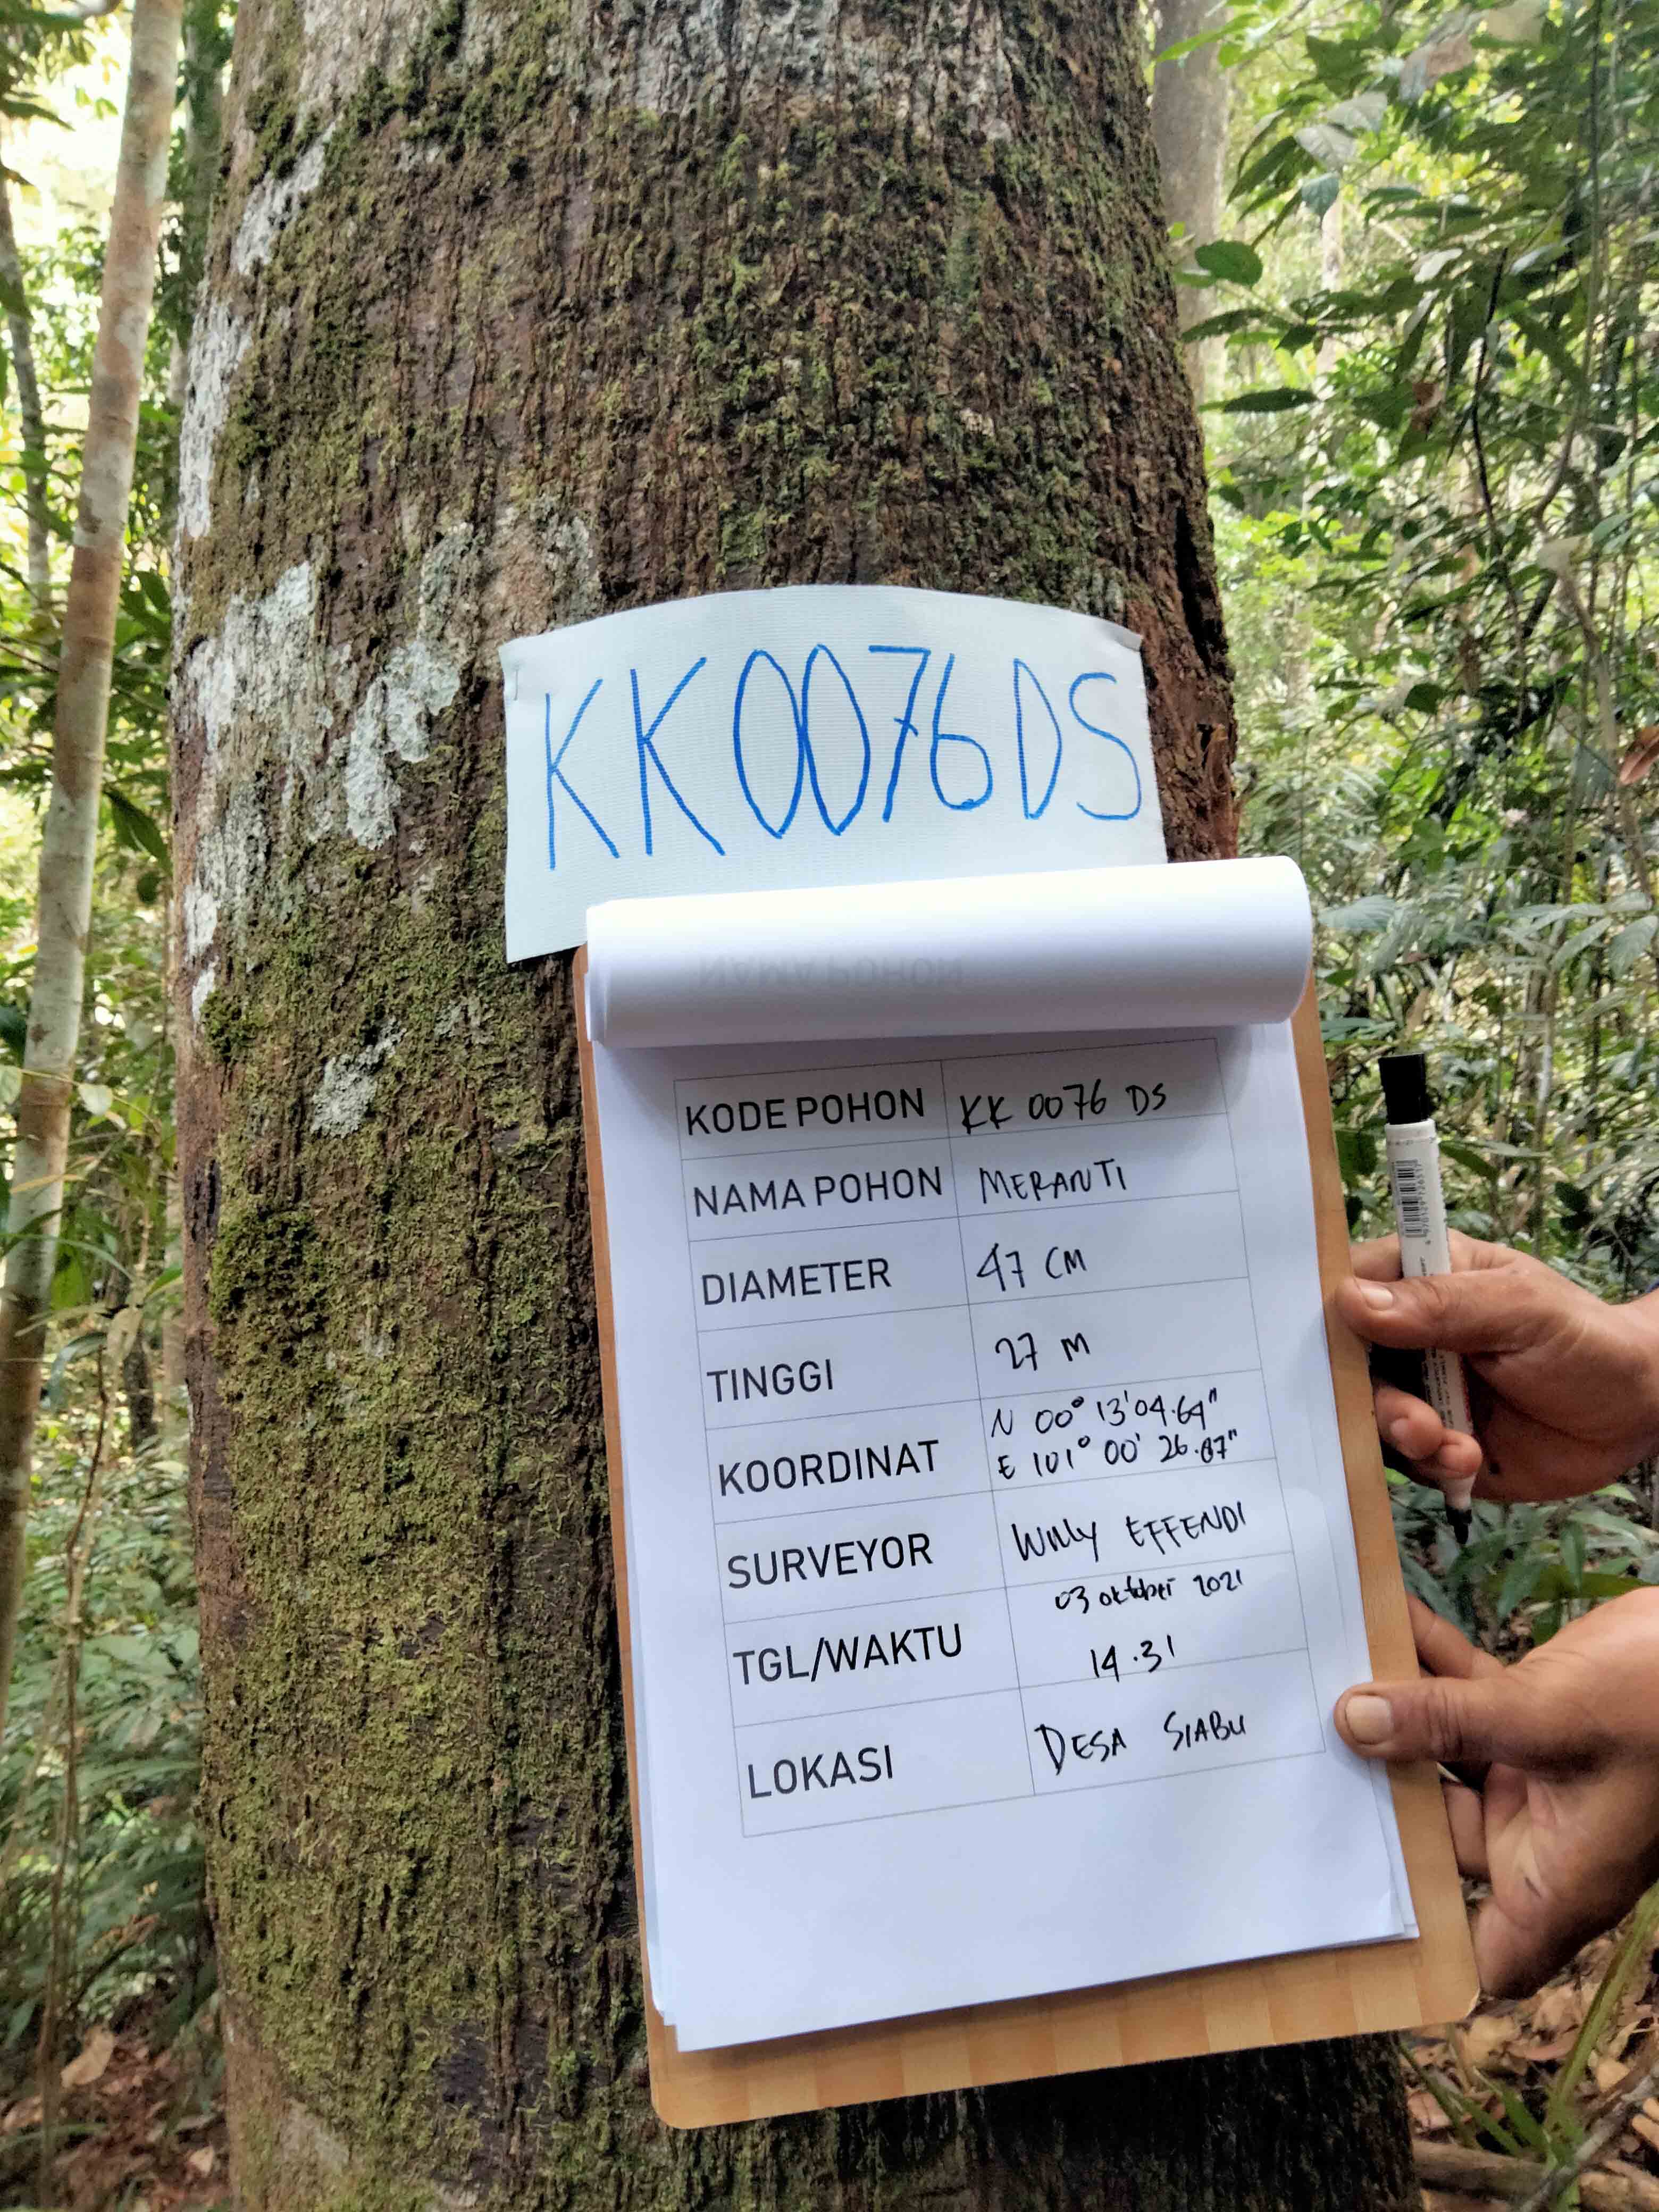 KK0076DS
NAMA POHON
KODE POHON KK 0076 DS
NAMA POHON MERANTI
DIAMETER 47 CM
TINGGI 27 M
KOORDINAT N 00° 13' 04.64"
E 101° 00' 26.87"
SURVEYOR WILLY EFFENDI
TGL/WAKTU 03 oktober 2021
14.31
LOKASI DESA SIABU